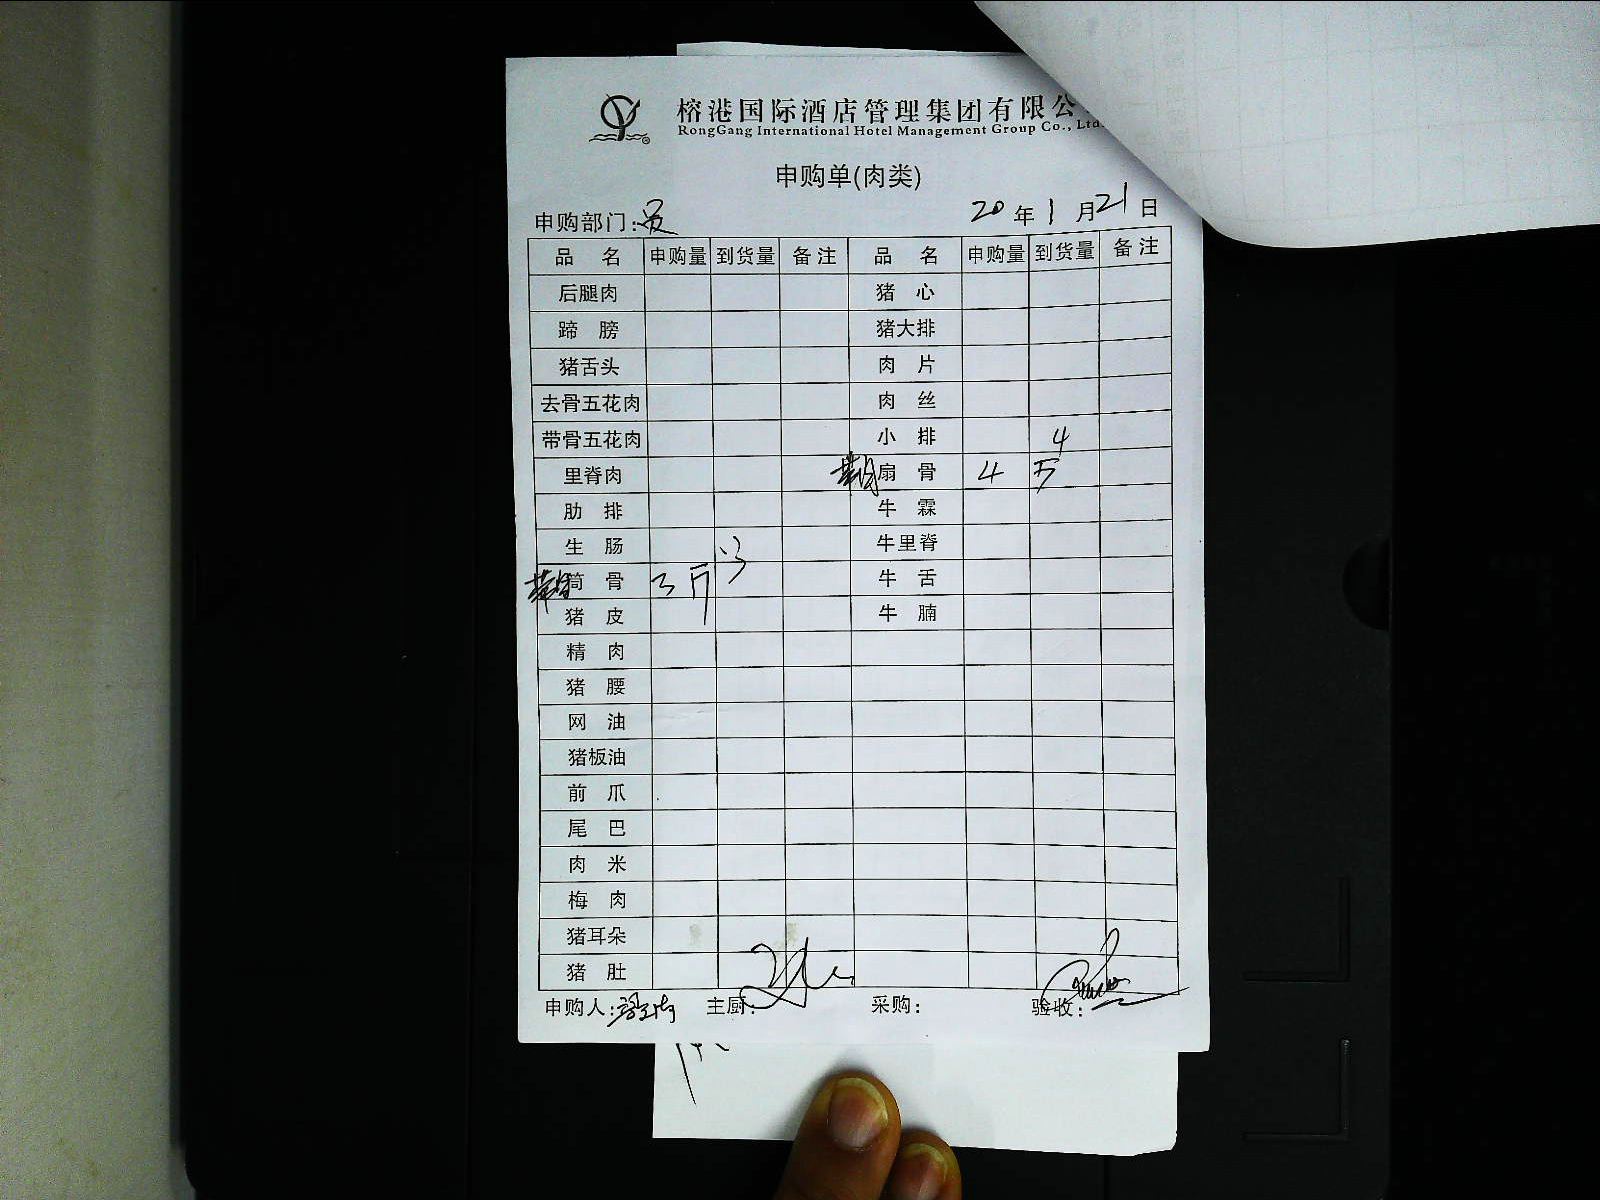 榕港国际酒店管理集团有限公
RongGang International Hotel Management Group Co., Ltd.
申购单(肉类)
申购部门: 20年1月21日
品名 申购量 到货量 备注 品名 申购量 到货量 备注
后腿肉 猪心
蹄膀 猪大排
猪舌头 肉片
去骨五花肉 肉丝
带骨五花肉 小排 4
里脊肉 扇骨 4斤
肋排 牛霖
生肠 牛里脊
筒骨 3斤 3 牛舌
猪皮 牛腩
精肉
猪腰
网油
猪板油
前爪
尾巴
肉米
梅肉
猪耳朵
猪肚
申购人: 主厨: 采购: 验收: